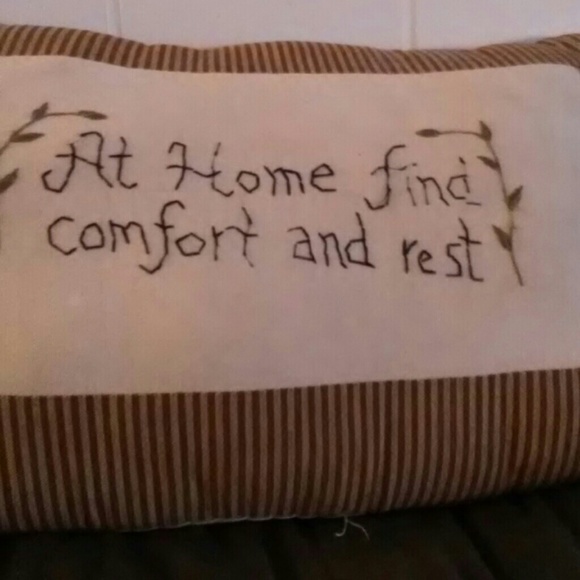 At Home find
comfort and rest